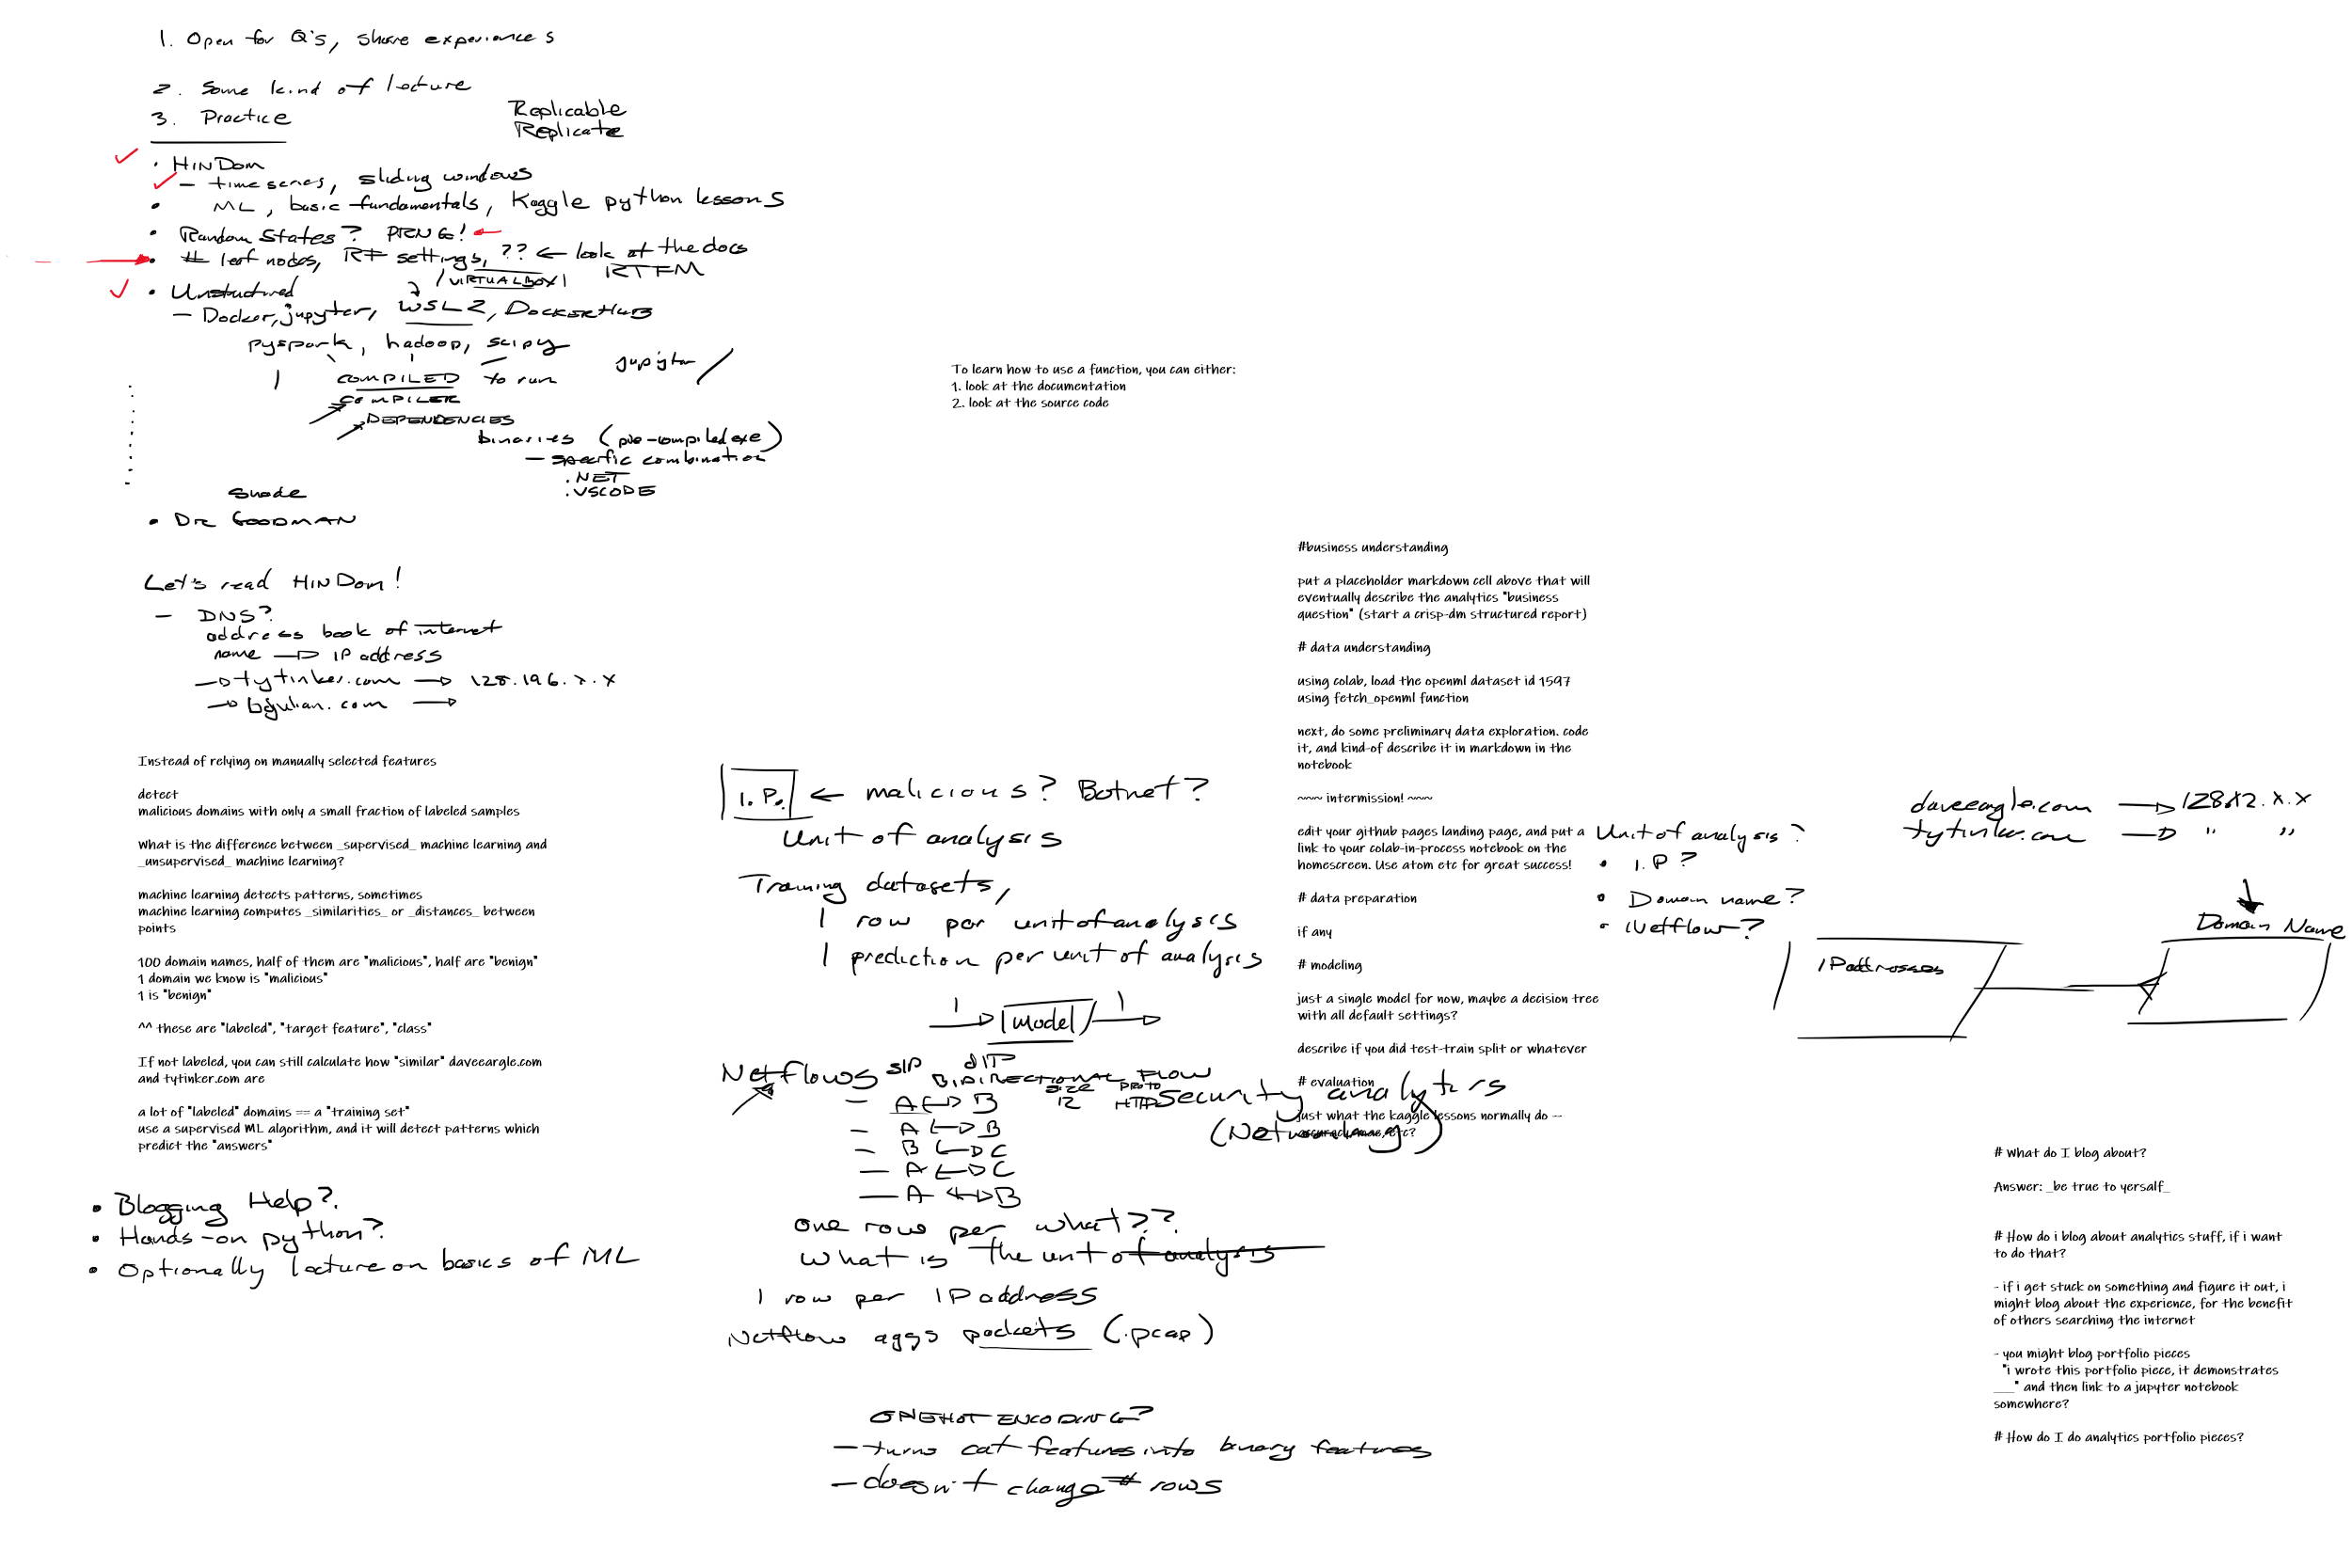 1. Open for Q's, share experiences
2. Some kind of lecture
3. Practice
Replicable
Replicate
• HINDom
– time series, sliding windows
• ML, basic fundamentals, Kaggle python lessons
• Random States? PRNG! ←
• # leaf nodes, RF settings, ?? ← look at the docs
RTFM
VIRTUALBOX
• Unstuctured
– Docker, jupyter, WSL2, DOCKERHUB
pyspark, hadoop, scipy
jupyter
COMPILED to run
COMPILER
DEPENDENCIES
binaries (pre-compiled exe)
– specific combination
.NET
.VSCODE
• DR GOODMAN
Let's read HINDom!
– DNS?
address book of internet
name → IP address
→ tytinker.com → 128.196.x.x
→ bgjulian.com →
Instead of relying on manually selected features
detect
malicious domains with only a small fraction of labeled samples
What is the difference between _supervised_ machine learning and
_unsupervised_ machine learning?
machine learning detects patterns, sometimes
machine learning computes _similarities_ or _distances_ between
points
100 domain names, half of them are "malicious", half are "benign"
1 domain we know is "malicious"
1 is "benign"
^^ these are "labeled", "target feature", "class"
If not labeled, you can still calculate how "similar" daveeargle.com
and tytinker.com are
a lot of "labeled" domains == a "training set"
use a supervised ML algorithm, and it will detect patterns which
predict the "answers"
• Blogging Help?
• Hands-on python?
• Optionally lecture on basics of ML
To learn how to use a function, you can either:
1. look at the documentation
2. look at the source code
I.P. ← malicious? Botnet?
Unit of analysis
Training datasets,
1 row per unit of analysis
1 prediction per unit of analysis
1 → model → 1
Netflows SIP DIP
BIDIRECTIONAL FLOW
SIZE PROTO
12 HTTP
– A ↔ B
– A ↔ B
– B ↔ C
– A ↔ C
– A ↔ B
Security analytics
(Networking)
one row per what??
what is the unit of analysis
1 row per IP address
Netflow aggs packets (.pcap)
ONEHOT ENCODING?
– turns cat features into binary features
– doesn't change # rows
#business understanding
put a placeholder markdown cell above that will
eventually describe the analytics "business
question" (start a crisp-dm structured report)
# data understanding
using colab, load the openml dataset id 1597
using fetch_openml function
next, do some preliminary data exploration. code
it, and kind-of describe it in markdown in the
notebook
~~~ intermission! ~~~
edit your github pages landing page, and put a
link to your colab-in-process notebook on the
homescreen. Use atom etc for great success!
# data preparation
if any
# modeling
just a single model for now, maybe a decision tree
with all default settings?
describe if you did test-train split or whatever
# evaluation
just what the kaggle lessons normally do --
Unit of analysis?
• I.P?
• Domain name?
• Netflow?
daveeargle.com → 128.12.x.x
tytinker.com → " "
IP addresses
Domain Name
# What do I blog about?
Answer: _be true to yersalf_
# How do i blog about analytics stuff, if i want
to do that?
- if i get stuck on something and figure it out, i
might blog about the experience, for the benefit
of others searching the internet
- you might blog portfolio pieces
"i wrote this portfolio piece, it demonstrates
___" and then link to a jupyter notebook
somewhere?
# How do I do analytics portfolio pieces?